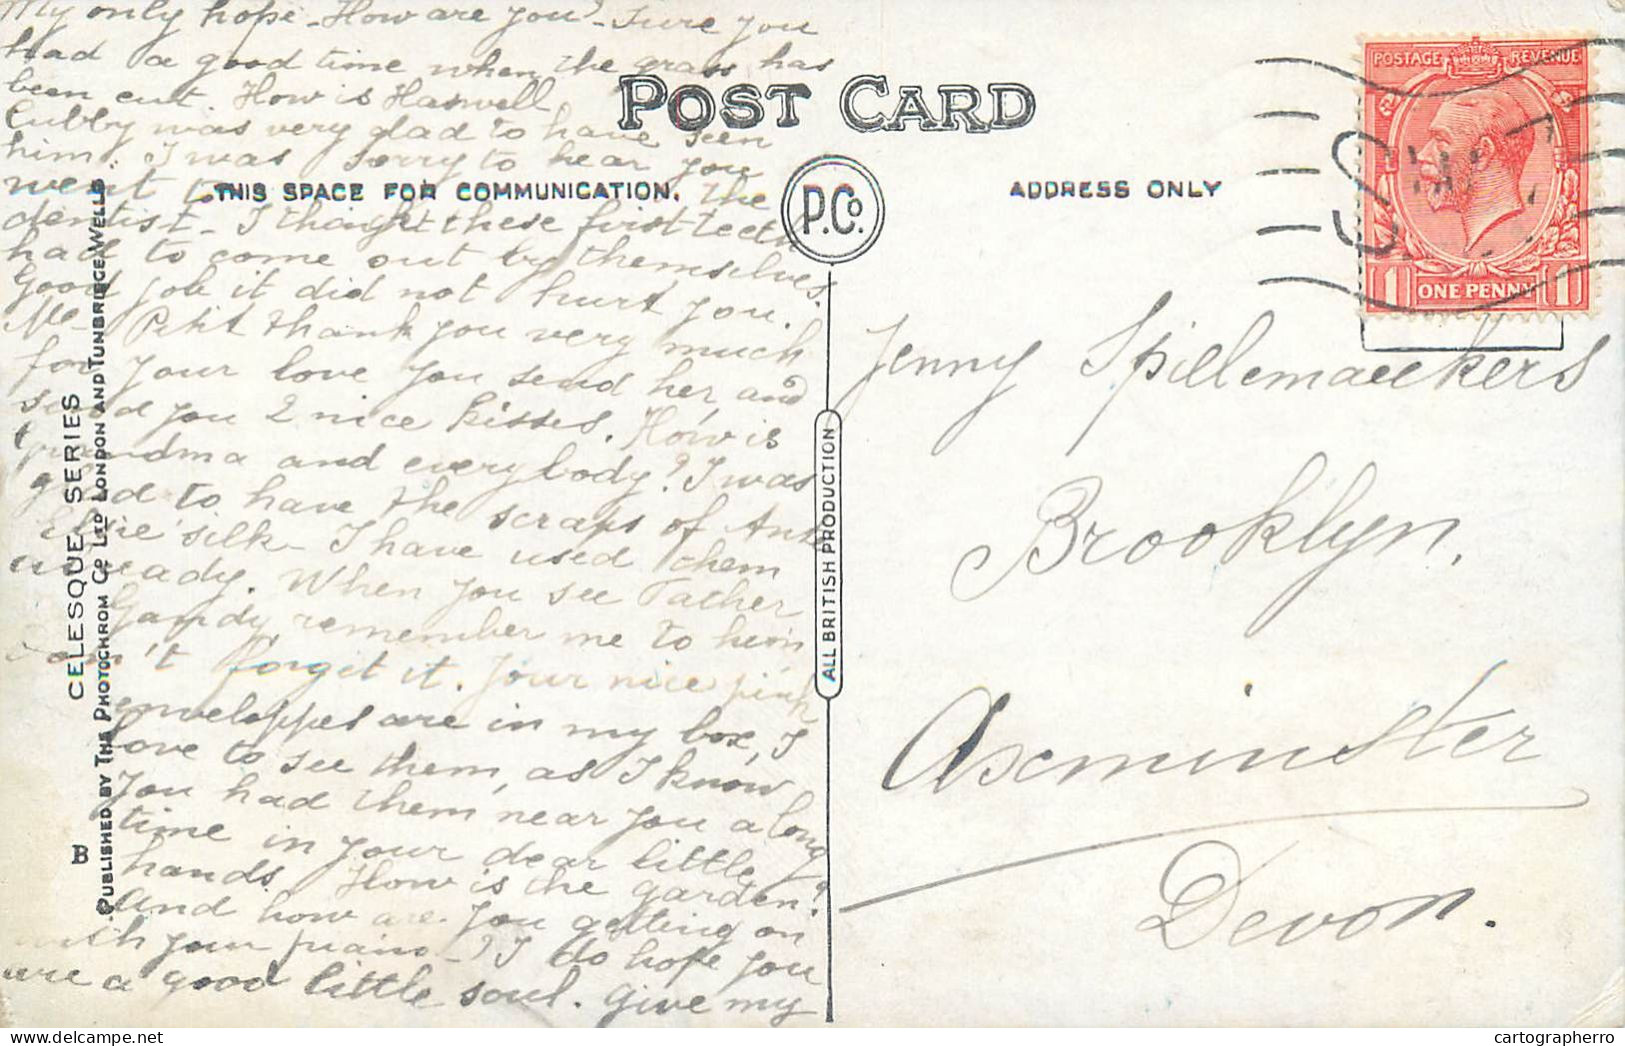 My only hope - How are you? - Sure you
had a good time when the grass has
been cut. How is Haswell,
Cubby was very glad to have seen
him. I was sorry to hear you
went to the
dentist - I thought these first teeth
had to come out by themselves.
Good job it did not hurt you.
Me- Petit thank you very much
for your love you send her, and
send you 2 nice kisses. How is
Grandma and everybody? I was
glad to have the scraps of Ant
Elsie silk - I have used them
already. When you see Father
Gandy remember me to him
don't forget it. Your nice pink
enveloppes are in my box, I
love to see them, as I know
you had them near you a long
time in your dear little
hands. How is the garden?
And how are you getting on
with your piano -? I do hope you
are a good little soul. Give my
POST CARD
THIS SPACE FOR COMMUNICATION.
ADDRESS ONLY
P.Co.
ALL BRITISH PRODUCTION
CELESQUE SERIES
PUBLISHED BY THE PHOTOCHROM Co LTD LONDON AND TUNBRIDGE WELLS.
B
POSTAGE REVENUE
1 ONE PENNY 1
Jenny Spillemaeckers
Brooklyn,
Axminster
Devon.
cartographerro